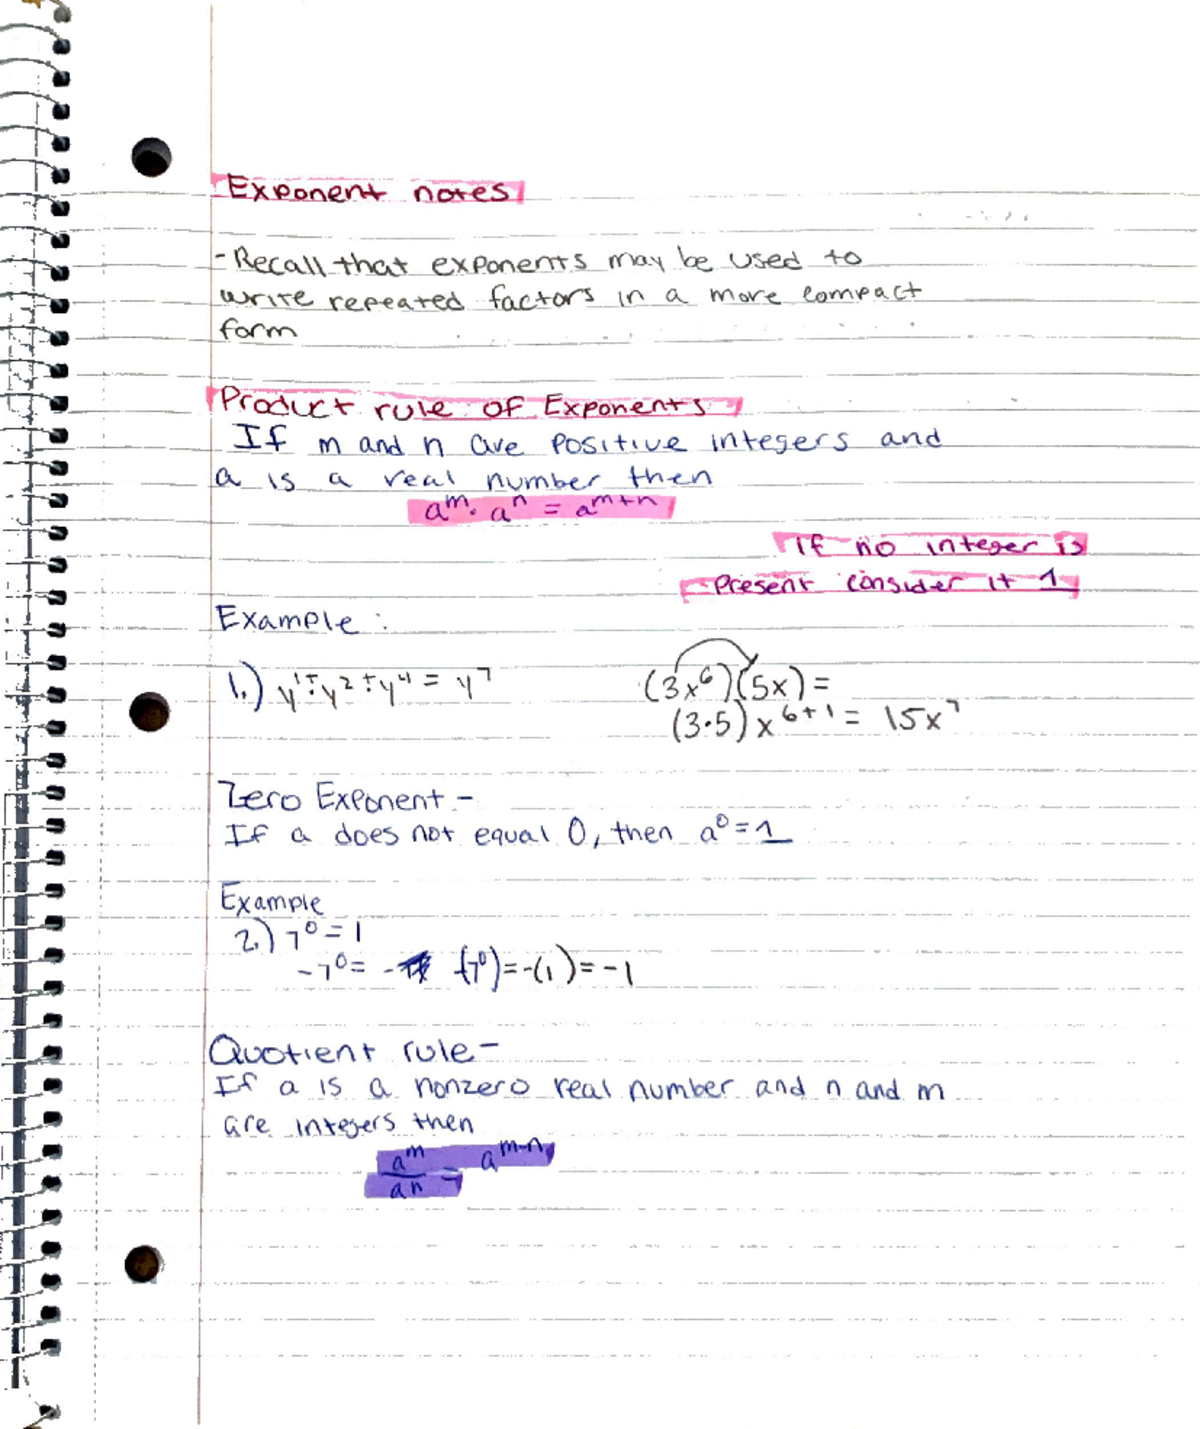 Exponent notes
- Recall that exponents may be used to
write repeated factors in a more compact
form
Product rule of Exponents
If m and n are positive integers and
a is a real number then
a^m · a^n = a^(m+n)
If no integer is
present consider it 1
Example :
1.) y¹⁺·y²⁺·y⁴ = y⁷
(3x⁶)(5x) =
(3·5) x⁶⁺¹ = 15x⁷
Zero Exponent -
If a does not equal 0, then a⁰ = 1
Example
2.) 7⁰ = 1
-7⁰ = - (7⁰) = -(1) = -1
Quotient rule -
If a is a nonzero real number and n and m
are integers then
a^m / a^n = a^(m-n)